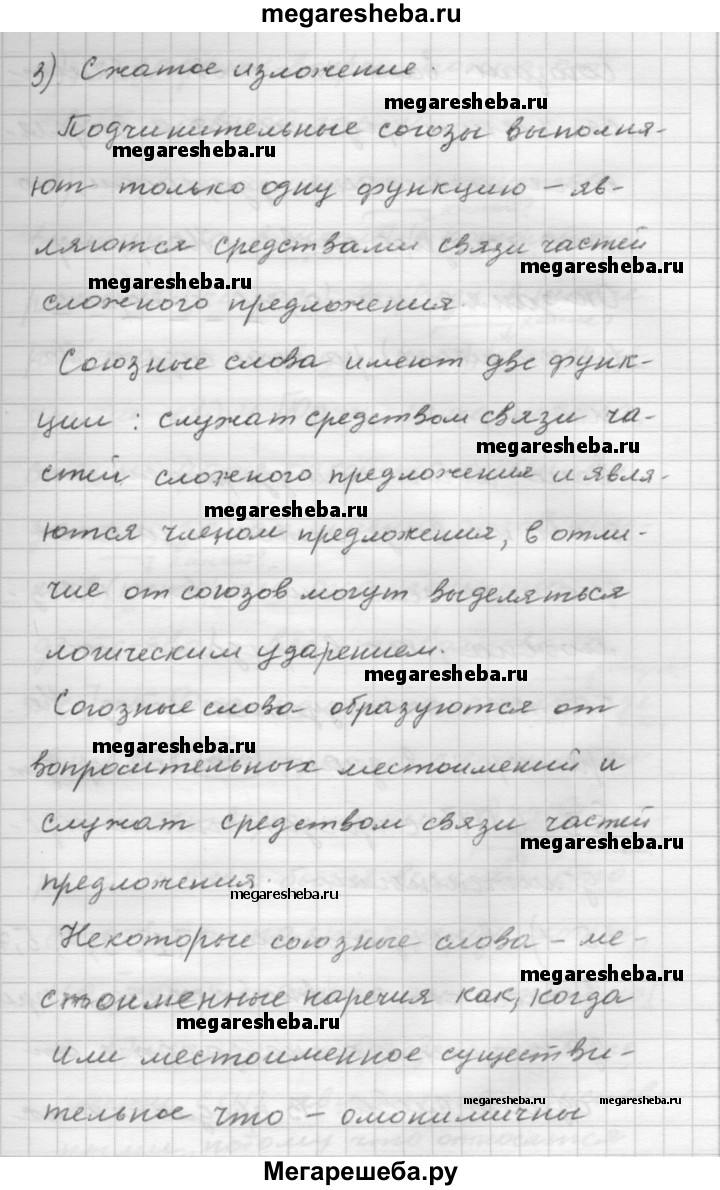 megaresheba.ru
3) Сжатое изложение.
megaresheba.ru
Подчинительные союзы выполня-
megaresheba.ru
ют только одну функцию – яв-
ляются средствами связи частей
megaresheba.ru
megaresheba.ru
сложного предложения.
Союзные слова имеют две функ-
ции: служат средством связи ча-
megaresheba.ru
стей сложного предложения и явля-
megaresheba.ru
ются членом предложения, в отли-
чие от союзов могут выделяться
логическим ударением.
megaresheba.ru
Союзные слова образуются от
megaresheba.ru
вопросительных местоимений и
служат средством связи частей
megaresheba.ru
предложения.
megaresheba.ru
Некоторые союзные слова – ме-
megaresheba.ru
стоименные наречия как, когда
megaresheba.ru
или местоименное существи-
megaresheba.ru megaresheba.ru
тельное что – омонимичны
Мегарешеба.ру